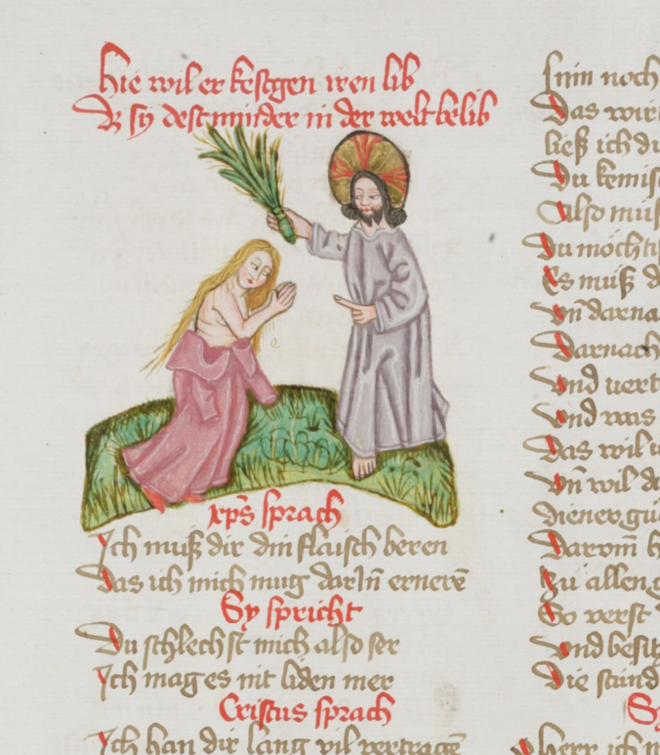 Hie wil er kestgen iren lib
Dz sy dest minder in der welt belib
xp̄s sprach
Ich muß dir din flaisch beren
Das ich mich mug dar Iñ ernerē
Sy spricht
Du schlechst mich also ser
Ich mag es nit liden mer
Cristus sprach
Ich han dir lang vil vertragē
sinn noch
Das wir
ließ ich du
Du kemis
Also mus
Du mocht
Es muß d
vñ darna
Darnach
vnd vert
vnd was
Das wil
vñ wil d
diener gu
Darom h
zu allen g
So verst
vnd besitz
Die stund
S
herr ich